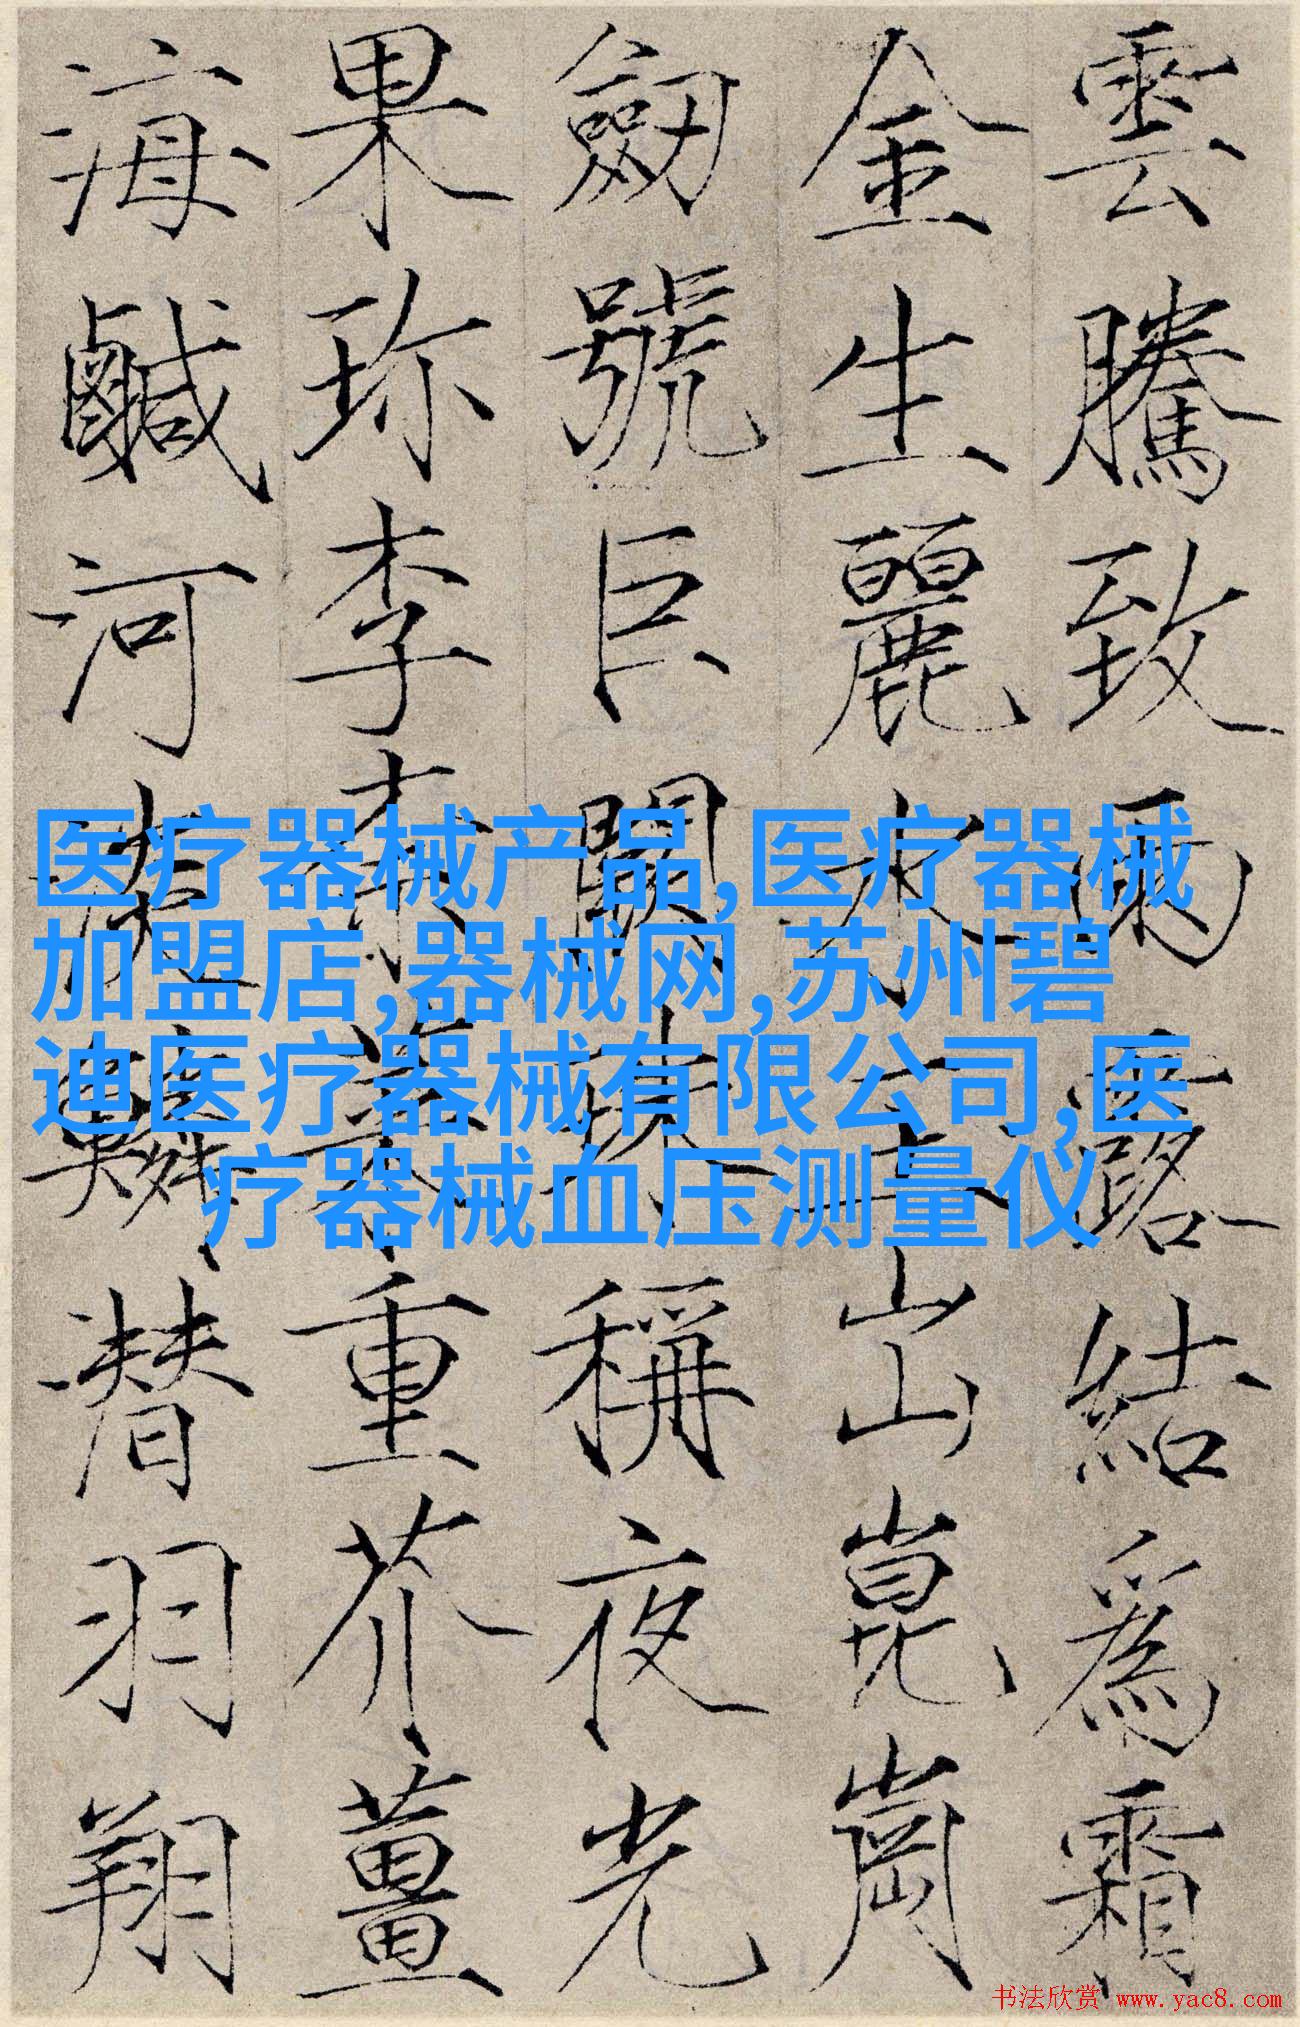 雲騰致雨露結爲霜
金生麗水玉出崑崗
劒號巨闕珠稱夜光
果珎李柰菜重芥薑
海鹹河淡鱗潛羽翔
医疗器械产品,医疗器械
加盟店,器械网,苏州碧
迪医疗器械有限公司,医
疗器械血压测量仪
书法欣赏 www.yac8.com